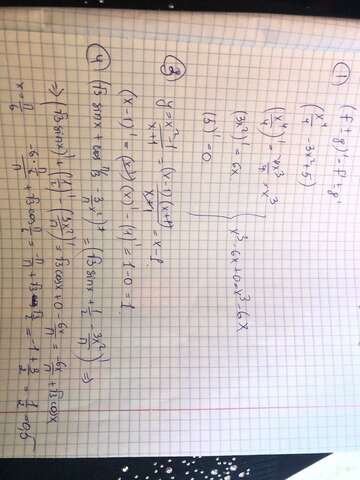 ① (f ± g)' = f' ± g'
(x⁴/4 - 3x² + 5)'
(x⁴/4)' = 4x³/4 = x³
(3x²)' = 6x
(5)' = 0
x³ - 6x + 0 = x³ - 6x
③
y = x² - 1 / x + 1 = (x - 1)(x + 1) / x + 1 = x - 1
(x - 1)' = (x)' - (1)' = 1 - 0 = 1
④ (√3 sin x + cos π/3 - 3x²/π)' = (√3 sin x + 1/2 - 3x²/π)' ⇒
⇒ (√3 sin x)' + (1/2)' - (3x²/π)' = √3 cos x + 0 - 6x/π = -6x/π + √3 cos x
x = π/6
-6 · π/6 / π + √3 cos π/6 = -π/π + √3 · √3/2 = -1 + 3/2 = 1/2 = 0,5